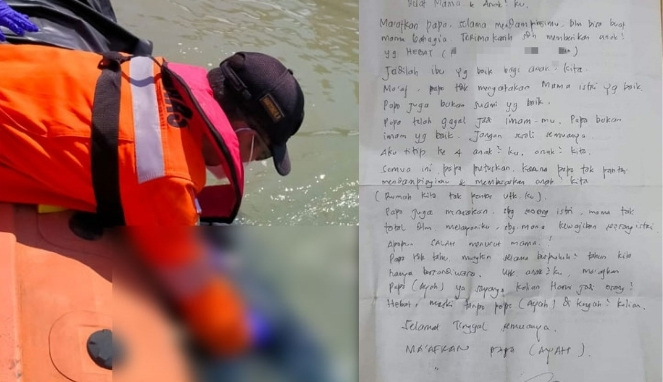 Buat Mama & Anak² ku.
Maafkan papa selama mendampingimu. Blm bisa buat
mama bahagia Terimakasih tlh memberikan anak²
yg Hebat (
Jadilah ibu yg baik bagi anak² kita
Ma'af. papa tak menyatakan Mama istri yg baik
Papa juga bukan suami yg baik.
Papa telah gagal jadi imam-mu. Papa bukan
imam yg baik. Jangan
Aku titip ke 4 anak² ku, anak² kita.
Semua ini papa putuskan. Karena papa tak pantas
mendampingimu & membesarkan anak² kita
(Rumah kita tak pantas utk ku)
Papa juga merasakan, sbg seorang istri. mama tak
total dlm melayaniku. sbg mana kewajiban seorang istri
Ampun
Papa tak tahu mungkin selama tahun kita
hanya bersandiwara. Utk anak² ku. maafkan
Papa (Ayah) ya sayang. kalian Harus jadi orang²
Hebat. meski tanpa papa (Ayah) di tengah² kalian.
Selamat Tinggal semuanya.
MA'AFKAN PAPA (AYAH)